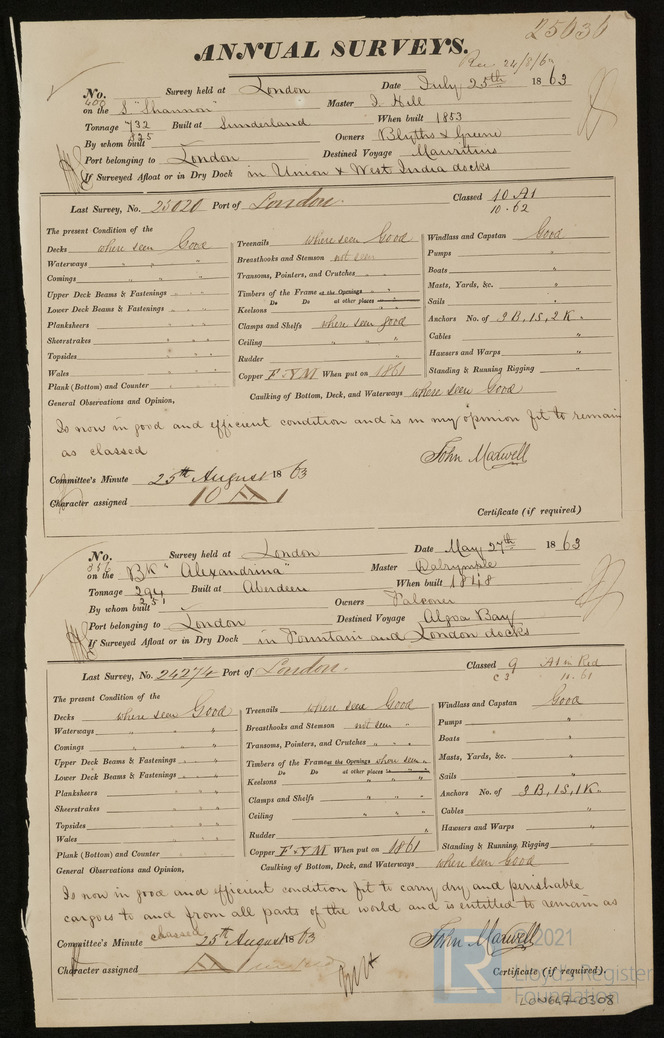 25636
ANNUAL SURVEYS.
Rec 24/8/63
No. 400 Survey held at London Date July 25th 1863
on the S "Shannon" Master J. Hill
Tonnage 732 825 Built at Sunderland When built 1853
By whom built Owners Blyths & Greene
Port belonging to London Destined Voyage Mauritius
If Surveyed Afloat or in Dry Dock in Union & West India docks
Last Survey, No. 23020 Port of London. Classed 10 A1
10.62
The present Condition of the
Decks where seen Good Treenails where seen Good Windlass and Capstan Good
Waterways " " " Breasthooks and Stemson not seen Pumps "
Comings " " " Transoms, Pointers, and Crutches " " Boats "
Upper Deck Beams & Fastenings " " " Timbers of the Frame at the Openings " " Masts, Yards, &c. "
Do Do at other places " "
Lower Deck Beams & Fastenings " " " Keelsons " " Sails "
Planksheers " " " Clamps and Shelfs where seen good Anchors No. of 3B, 1S, 2K.
Sheerstrakes " " " Ceiling " " " Cables "
Topsides " " " Rudder " Hawsers and Warps "
Wales " " " Copper F & YM When put on 1861 Standing & Running Rigging "
Plank (Bottom) and Counter " " " Caulking of Bottom, Deck, and Waterways where seen Good
General Observations and Opinion,
Is now in good and efficient condition and is in my opinion fit to remain
as classed
John Maxwell
Committee's Minute 25th August 1863
Character assigned 10 A 1
Certificate (if required)
No. 356 Survey held at London Date May 27th 1863
on the Bk "Alexandrina" Master Dalrymple
Tonnage 294 251 Built at Aberdeen When built 1848
By whom built Owners Falconer
Port belonging to London Destined Voyage Algoa Bay
If Surveyed Afloat or in Dry Dock in Fountain and London docks
Last Survey, No. 24274 Port of London. Classed 9 A1 in Red
C3 10.61
The present Condition of the
Decks where seen Good Treenails where seen Good Windlass and Capstan Good
Waterways " " " Breasthooks and Stemson not seen " Pumps "
Comings " " " Transoms, Pointers, and Crutches " " " Boats "
Upper Deck Beams & Fastenings " " " Timbers of the Frame at the Openings where seen " Masts, Yards, &c. "
Do Do at other places " " "
Lower Deck Beams & Fastenings " " " Keelsons " " " Sails "
Planksheers " " " Clamps and Shelfs " " " Anchors No. of 3B, 1S, 1K.
Sheerstrakes " " " Ceiling " " " Cables "
Topsides " " " Rudder " Hawsers and Warps "
Wales " " " Copper F & YM When put on 1861 Standing & Running Rigging "
Plank (Bottom) and Counter " " " Caulking of Bottom, Deck, and Waterways where seen Good
General Observations and Opinion,
Is now in good and efficient condition fit to carry dry and perishable
cargoes to and from all parts of the world and is entitled to remain as
classed
Committee's Minute 25th August 1863 John Maxwell
Character assigned A 1 in red
Certificate (if required)
©2021
LR
Lloyd's Register
Foundation
LON647-0308